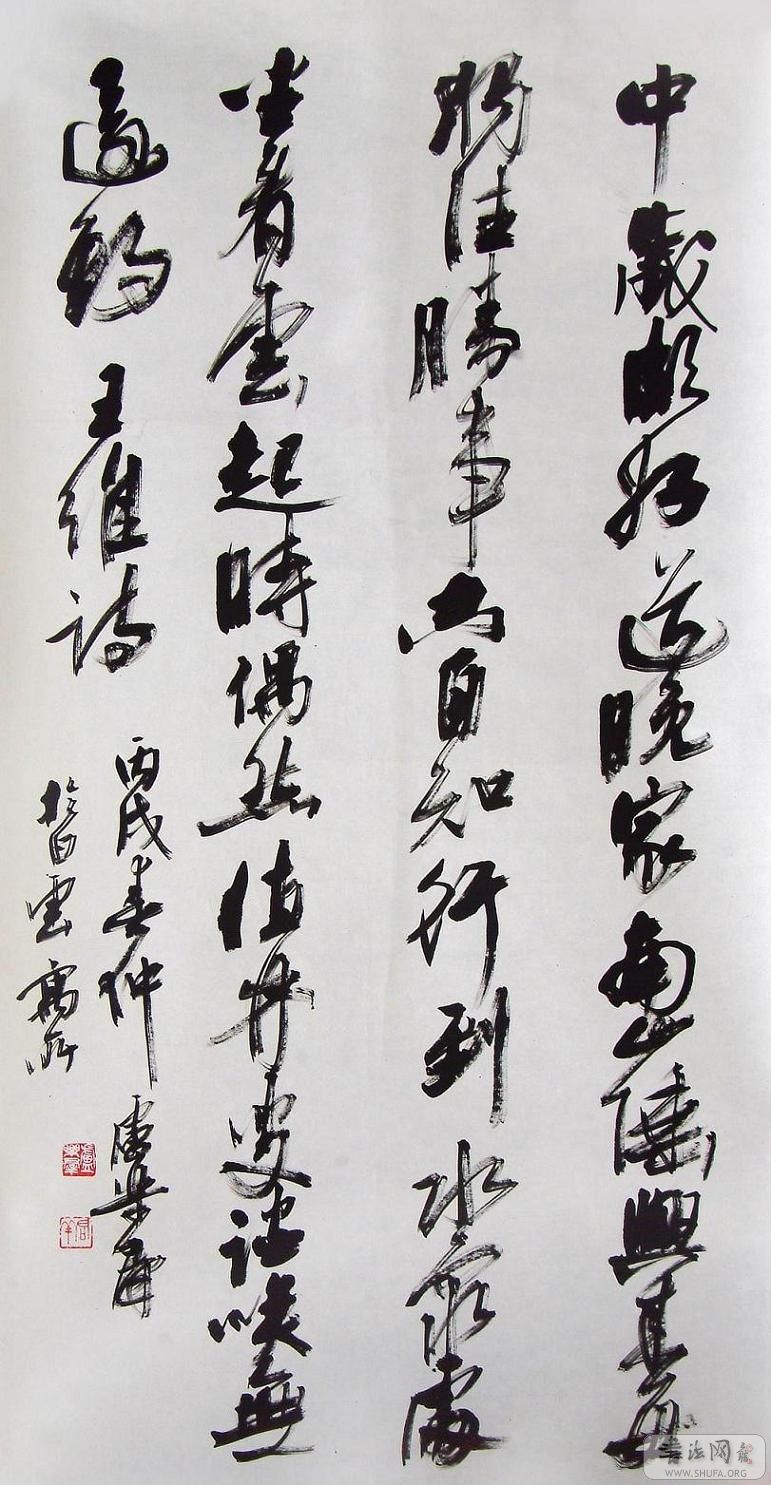 中歲頗好道晚家南山陲興來每
獨往勝事空自知行到水窮處
坐看雲起時偶然值林叟談咲無
還期 王維詩
丙戌春仲
於白雲寓所
書法网
WWW.SHUFA.ORG